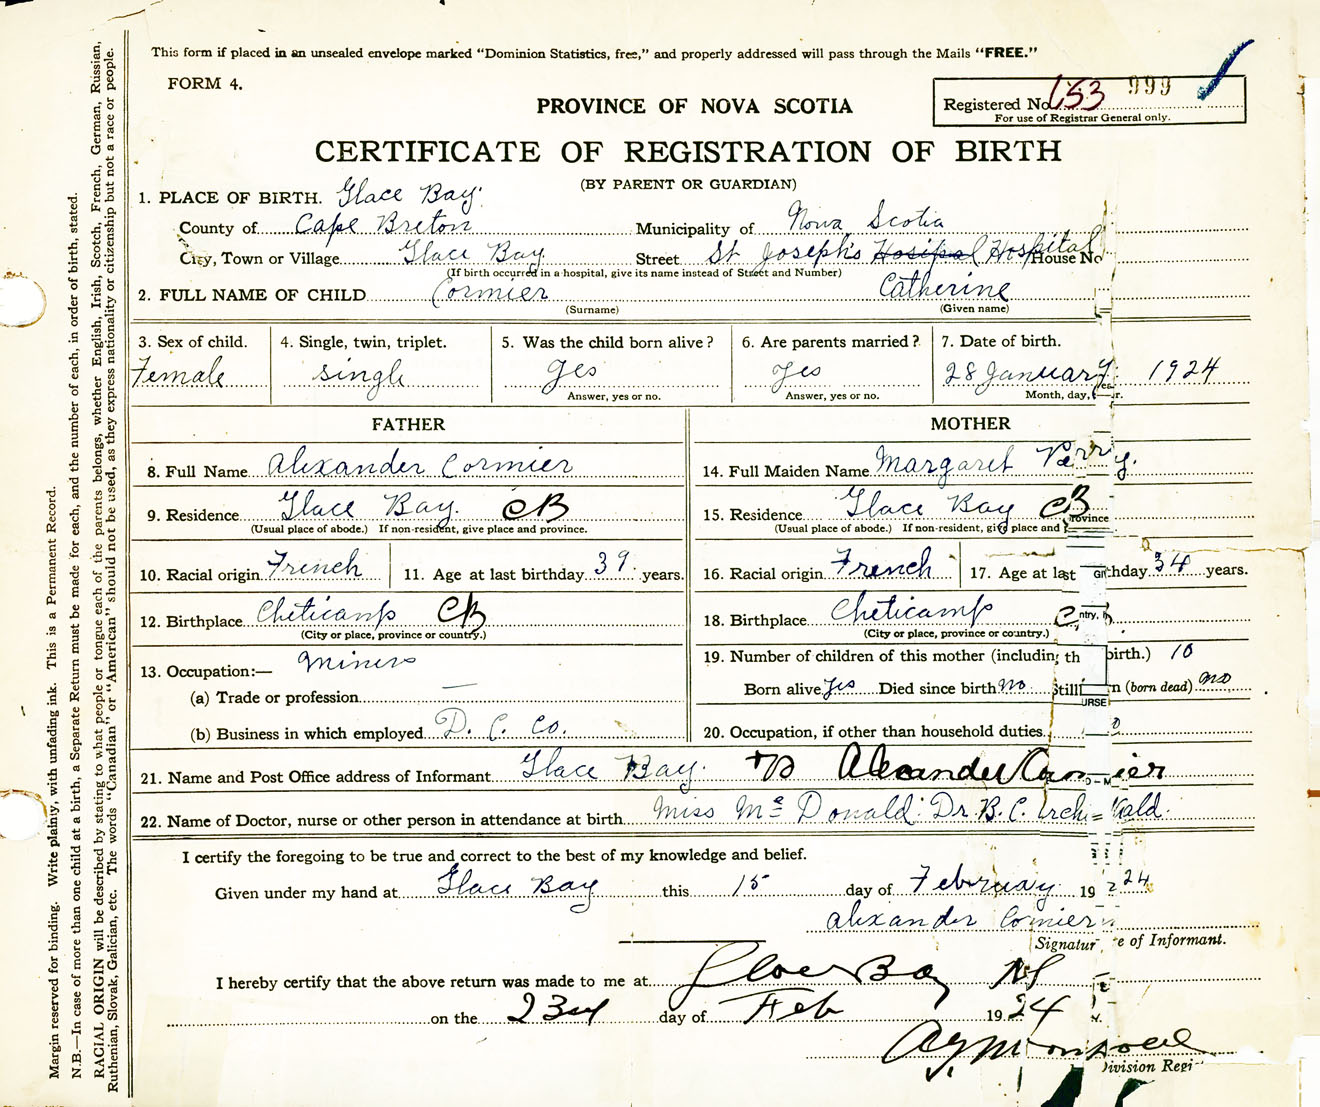 This form if placed in an unsealed envelope marked "Dominion Statistics, free," and properly addressed will pass through the Mails "FREE."
FORM 4.
Registered No. 153 999
For use of Registrar General only.
PROVINCE OF NOVA SCOTIA
CERTIFICATE OF REGISTRATION OF BIRTH
(BY PARENT OR GUARDIAN)
1. PLACE OF BIRTH. Glace Bay.
County of Cape Breton Municipality of Nova Scotia
City, Town or Village Glace Bay Street St Joseph's Hosipal Hospital House No
(If birth occurred in a hospital, give its name instead of Street and Number)
2. FULL NAME OF CHILD Cormier Catherine
(Surname) (Given name)
3. Sex of child. 4. Single, twin, triplet. 5. Was the child born alive? 6. Are parents married? 7. Date of birth.
Female single yes yes 28 January 1924
Answer, yes or no. Answer, yes or no. Month, day, year.
FATHER MOTHER
8. Full Name Alexander Cormier 14. Full Maiden Name Margaret Perry.
9. Residence Glace Bay. CB 15. Residence Glace Bay CB
(Usual place of abode.) If non-resident, give place and province. (Usual place of abode.) If non-resident, give place and province
10. Racial origin French 11. Age at last birthday 39. years. 16. Racial origin French 17. Age at last birthday 34 years.
12. Birthplace Cheticamp CB 18. Birthplace Cheticamp C
(City or place, province or country.) (City or place, province or country.)
13. Occupation:— Miners 19. Number of children of this mother (including th birth.) 10
(a) Trade or profession — Born alive yes Died since birth no Still n (born dead) no
(b) Business in which employed D. C. Co. 20. Occupation, if other than household duties.
21. Name and Post Office address of Informant Glace Bay. Alexander Cormier
22. Name of Doctor, nurse or other person in attendance at birth Miss Mc Donald. Dr. B. C. Archibald.
I certify the foregoing to be true and correct to the best of my knowledge and belief.
Given under my hand at Glace Bay this 15 day of February 1924
Alexander Cormier
Signature of Informant.
I hereby certify that the above return was made to me at Glace Bay NS
on the 23rd day of Feb 1924
Division Regi
Margin reserved for binding. Write plainly, with unfading ink. This is a Permanent Record.
N.B.—In case of more than one child at a birth, a Separate Return must be made for each, and the number of each, in order of birth, stated.
RACIAL ORIGIN will be described by stating to what people or tongue each of the parents belongs, whether English, Irish, Scotch, French, German, Russian,
Ruthenian, Slovak, Galician, etc. The words "Canadian" or "American" should not be used, as they express nationality or citizenship but not a race or people.